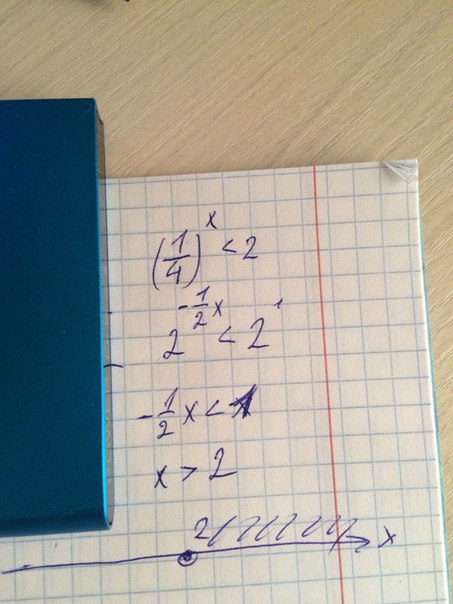 (1/4)^x < 2
2^(-1/2x) < 2^1
-1/2x < 1
x > 2
2 x